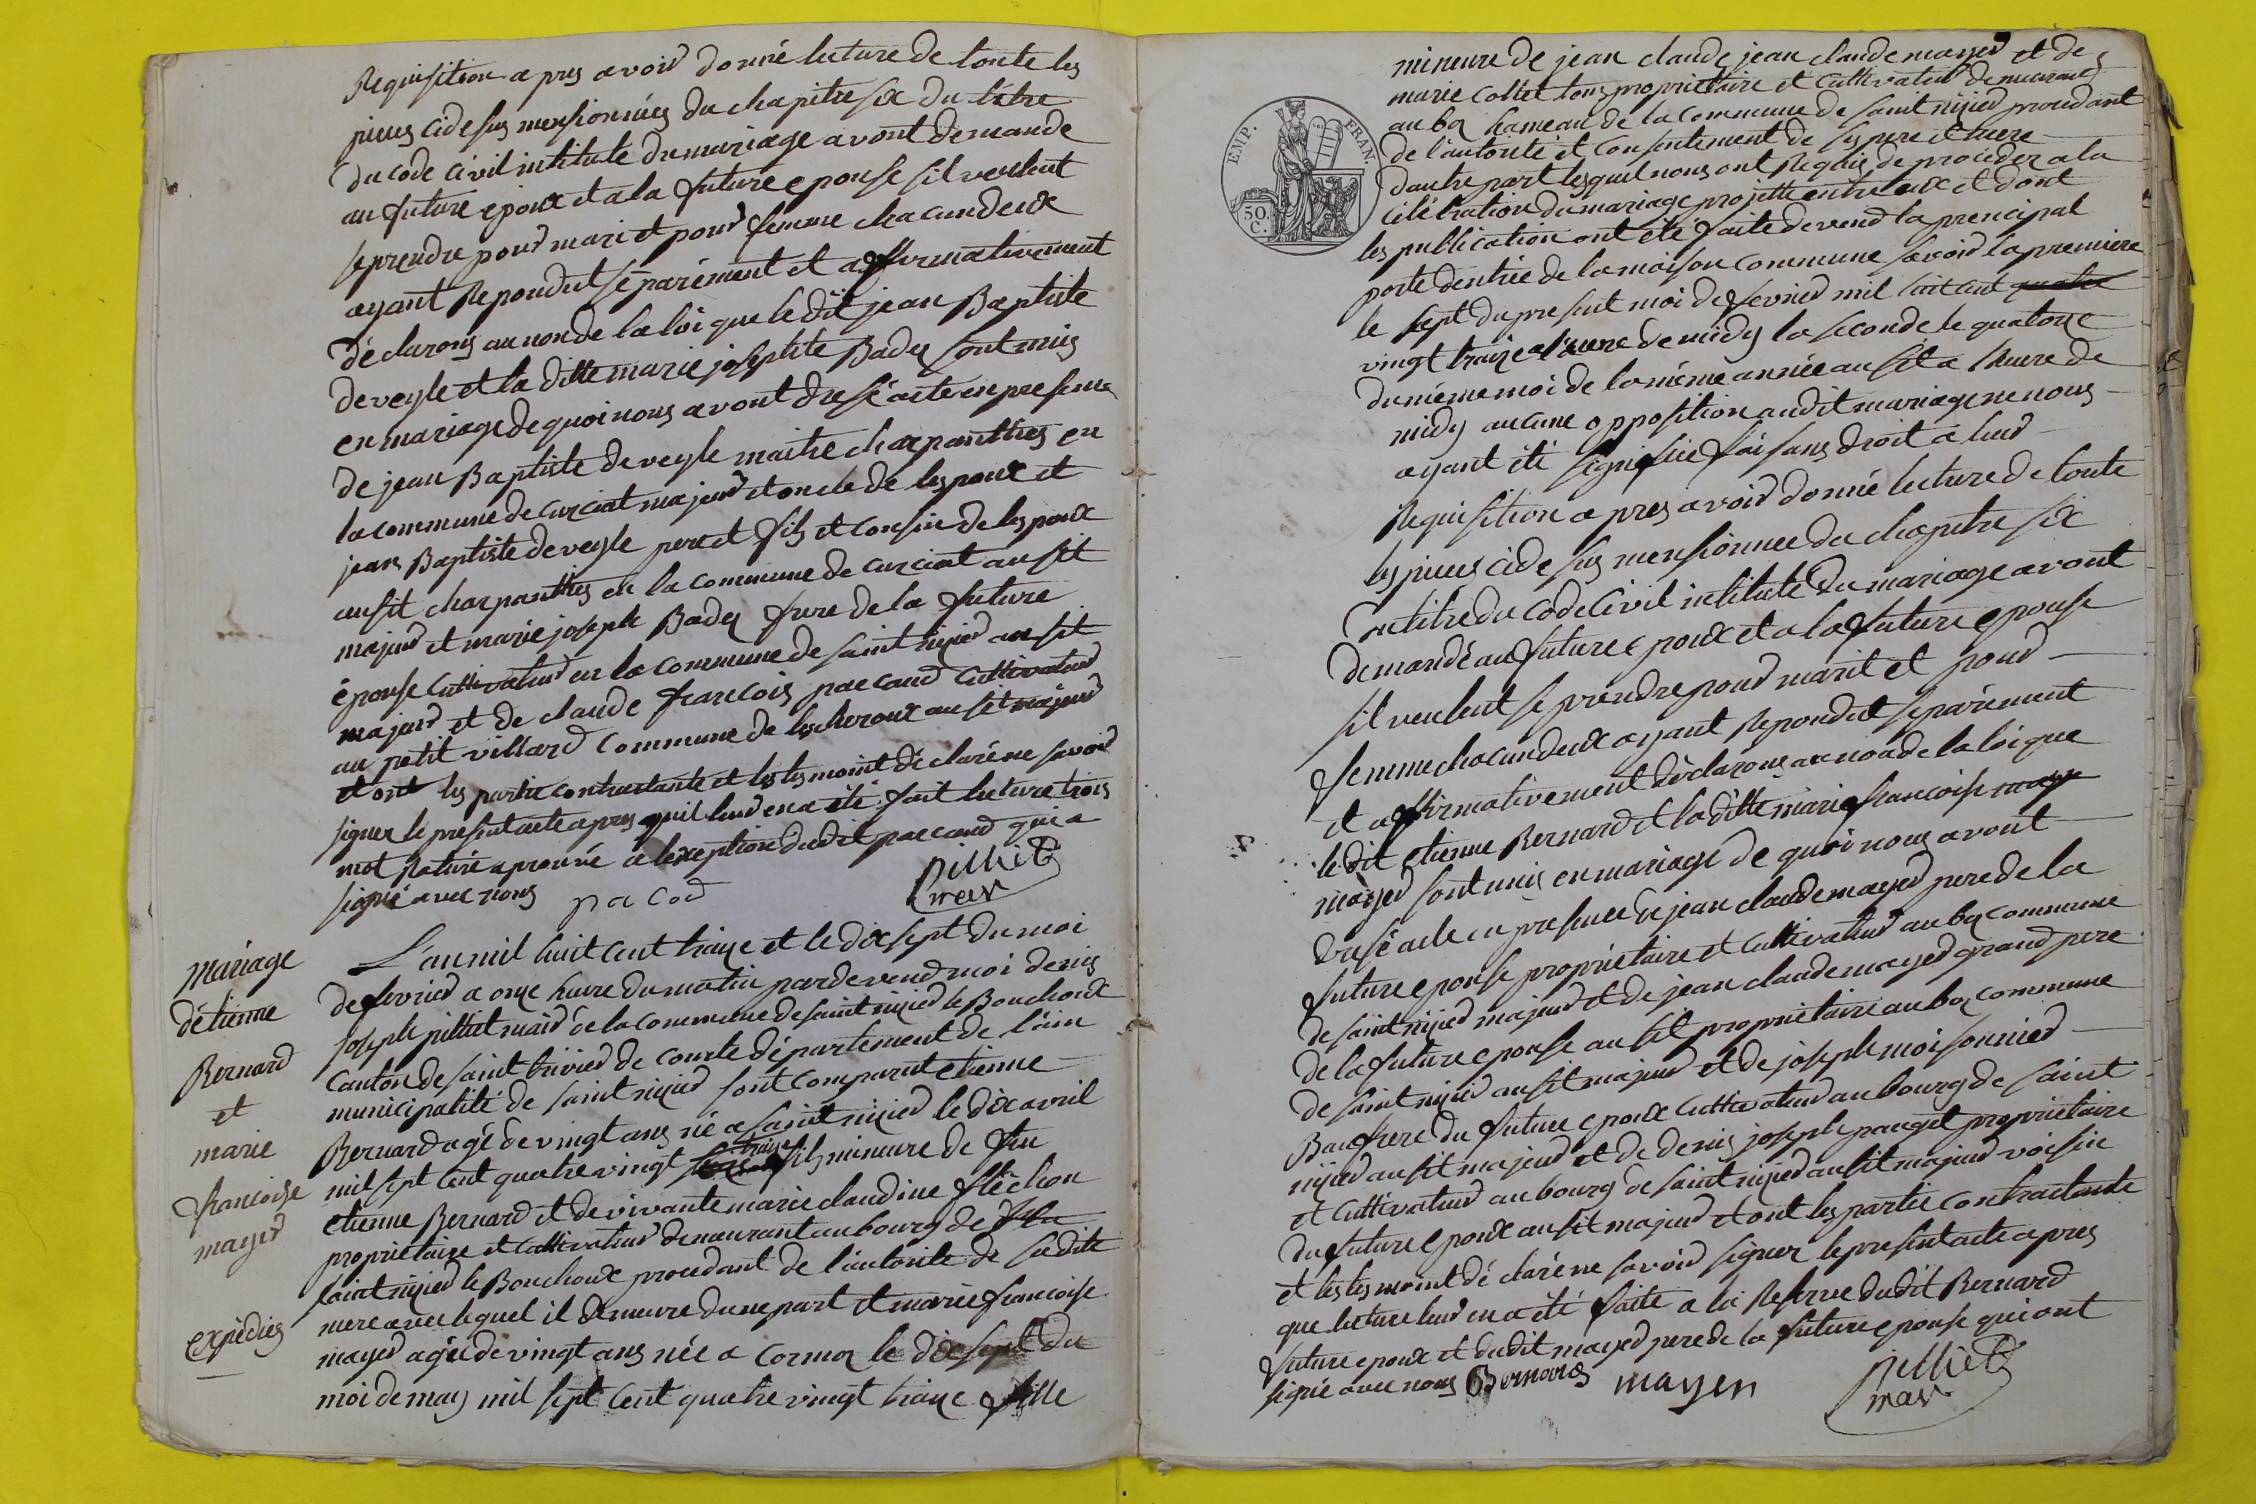 Requisition a pres avoir donné lecture de toute les
pieces cidesus mensionnées du chapitre six du titre
du code civil intitulé du mariage avont demande
au future epoux et a la future epouse sil veulent
se prendre pour mari et pour femme chacun deux
ayant Repondut séparément et affirmativement
déclarons au nom de la loi que le dit jean Baptiste
deveyle et la ditte marie josephte Badey sont unis
en mariage de quoi nous avont dresé acte en presence
de jean Baptiste deveyle maitre charpanthes en
la commune de curciat majeur et oncle de lespoux et
jean Baptiste deveyle pere et fils et cousin de lespoux
ausit charpanthes en la commune de curciat ausit
majeur et marie joseph Badey frere de la future
épouse Cultivateur en la commune de saint nizier ausit
majeur et de claude francois paccaud Cultivateur
au petit villard commune de lescheroux ausit majeur
et ont les partie contractante et les tesmoint déclaré ne savoir
signer le present acte apres quil leur en a été fait lecture trois
mot Raturé aprouvé a lexeption dudit paccaud qui a
signé avec nous pacod pilliet
mair
mariage
détienne
Bernard
et
marie
francoise
mayer
expédies
L'an mil huit cent traize et le dix sept du moi
de fevrier a onze heure du matin pardevend moi denis
joseph pilliet mair de la commune de saint nizier le Bouchoux
canton de saint trivier de courte département de l'ain
municipalité de saint nizier sont comparut etienne
Bernard agé de vingt ans né a saint nizier le dix avril
mil sept cent quatre vingt traize fils mineure de feu
etienne Bernard et de vivante marie claudine fléchon
proprietaire et Cultivateur demeurant au bourg de
saint nizier le Bouchoux procedant de l'autorité de sadite
mere avec lequel il demeure dune part et marie francoise
mayer agée de vingt ans née a cormoz le dix sept du
moi de may mil sept cent quatre vingt traize fille
EMP. FRAN.
50
C.
mineure de jean claude jean claude mayer et de
marie collet tous proprietaire et Cultivateur demeurant
au boz hameau de la commune de saint nizier procedant
de l'autorité et consentement de ses pere et mere
dautre part lesquel nous ont Requis de proceder a la
célébration du mariage projetté entre eux et dont
les publication ont été faite devend la prencipal
porte dentrée de la maison commune savoir la premiere
le sept du present moi de fevrier mil huit cent
vingt traize a l'heure de midy la seconde le quatorze
du même moi de la même année ausit a l'heure de
midy aucune opposition audit mariage ne nous
ayant été signifié faisans droit a leur
Requisition a pres avoir donné lecture de toute
les pieces cidesus mensionnee du chapitre six
du titre du code civil intitulé du mariage avont
demandé au future epoux et a la future epouse
sil veulent se prendre pour marit et pour
femme chacun deux ayant Repondut separément
et affirmativement déclarons au nom de la loi que
le dit etienne Bernard et la ditte marie francoise
mayer sont unis en mariage de quoi nous avont
dresé acte en presence de jean claude mayer pere de la
future epouse proprietaire et Cultivateur au boz commune
de saint nizier majeur et de jean claude mayer grand pere
de la future epouse ausit proprietaire au boz commune
de saint nizier ausit majeur et de joseph moisonnier
Baufrere du future epoux Cultivateur au bourg de saint
nizier ausit majeur et de denis joseph pauget proprietaire
et Cultivateur au bourg de saint nizier ausit majeur voisin
du future epoux ausit majeur et ont les partie contractante
et les tesmoint déclaré ne savoir signer le present acte apres
que lecture leur en a été faite a la Reserve dudit Bernard
future epoux et dudit mayer pere de la future epouse qui ont
signé avec nous Bernard mayer pilliet
mair